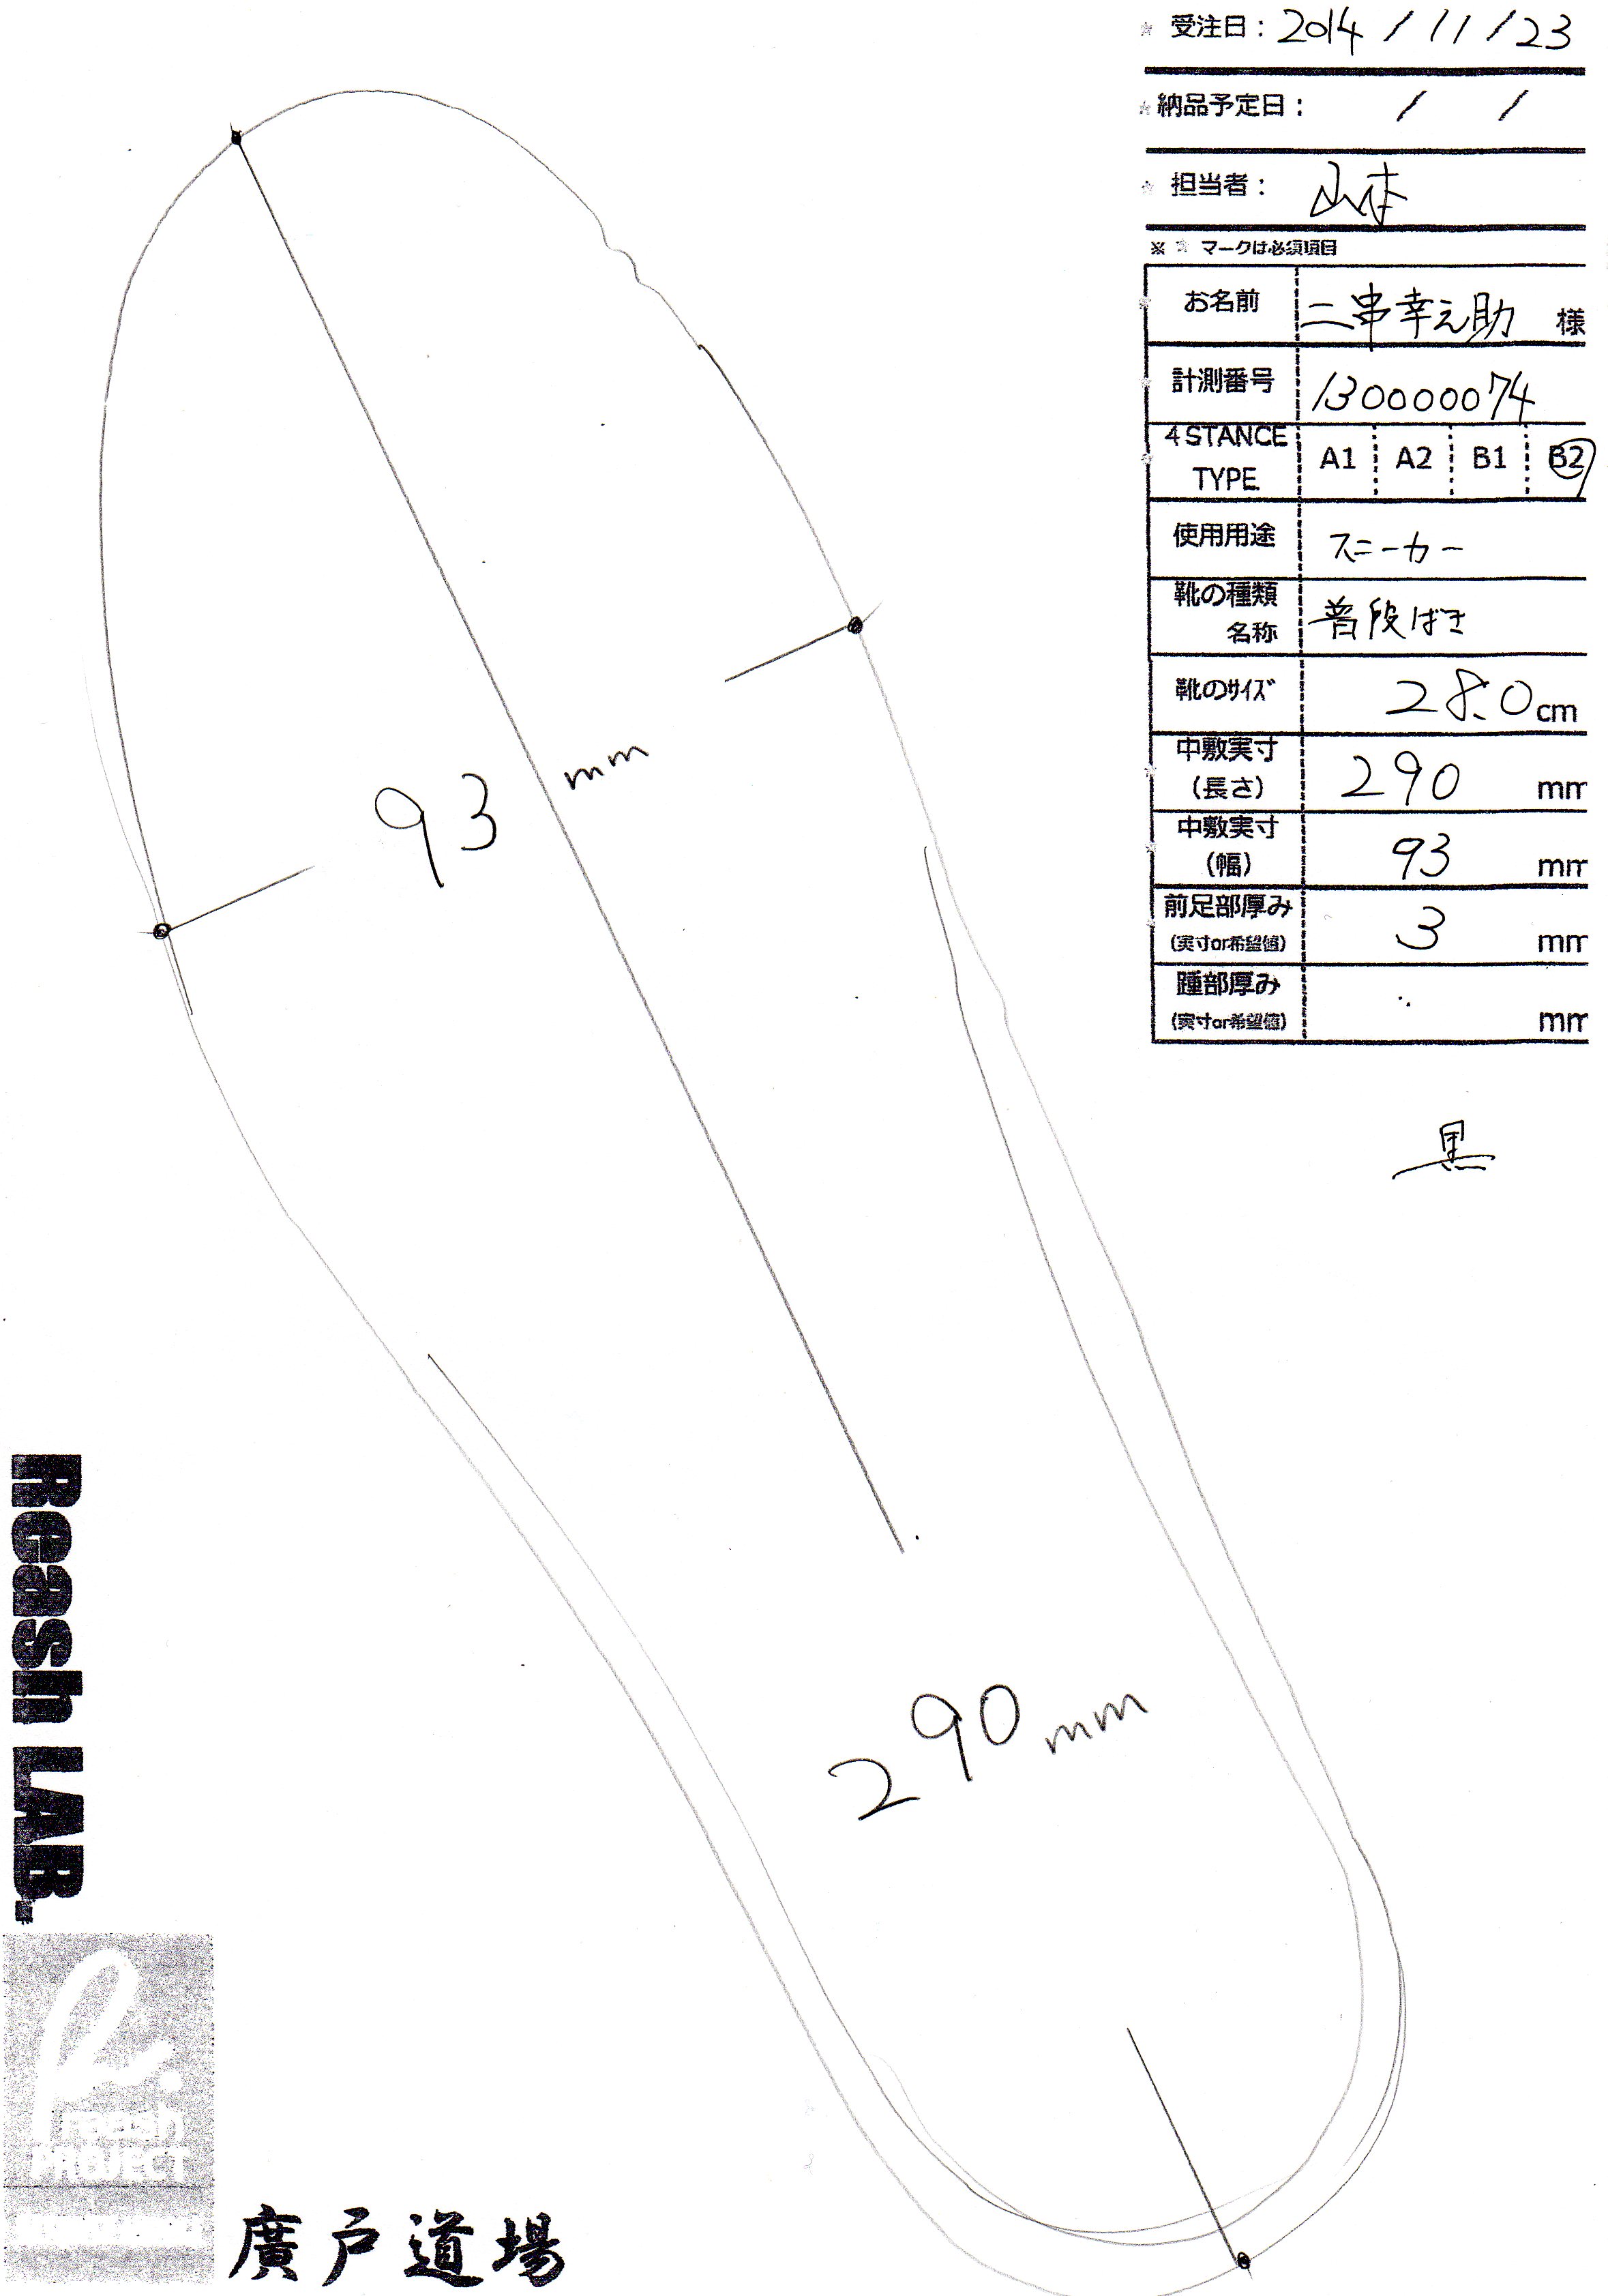 ☆ 受注日: 2014 / 11 / 23
☆ 納品予定日: / /
☆ 担当者: 山本
※ ☆ マークは必須項目
お名前 二串幸之助 様
計測番号 130000074
4STANCE TYPE A1 A2 B1 B2
使用用途 スニーカー
靴の種類 名称 普段ばき
靴のサイズ 28.0cm
中敷実寸 (長さ) 290 mm
中敷実寸 (幅) 93 mm
前足部厚み (実寸or希望値) 3 mm
踵部厚み (実寸or希望値) mm
黒
93 mm
290 mm
Reash LAB.
reash
PROJECT
廣戸道場